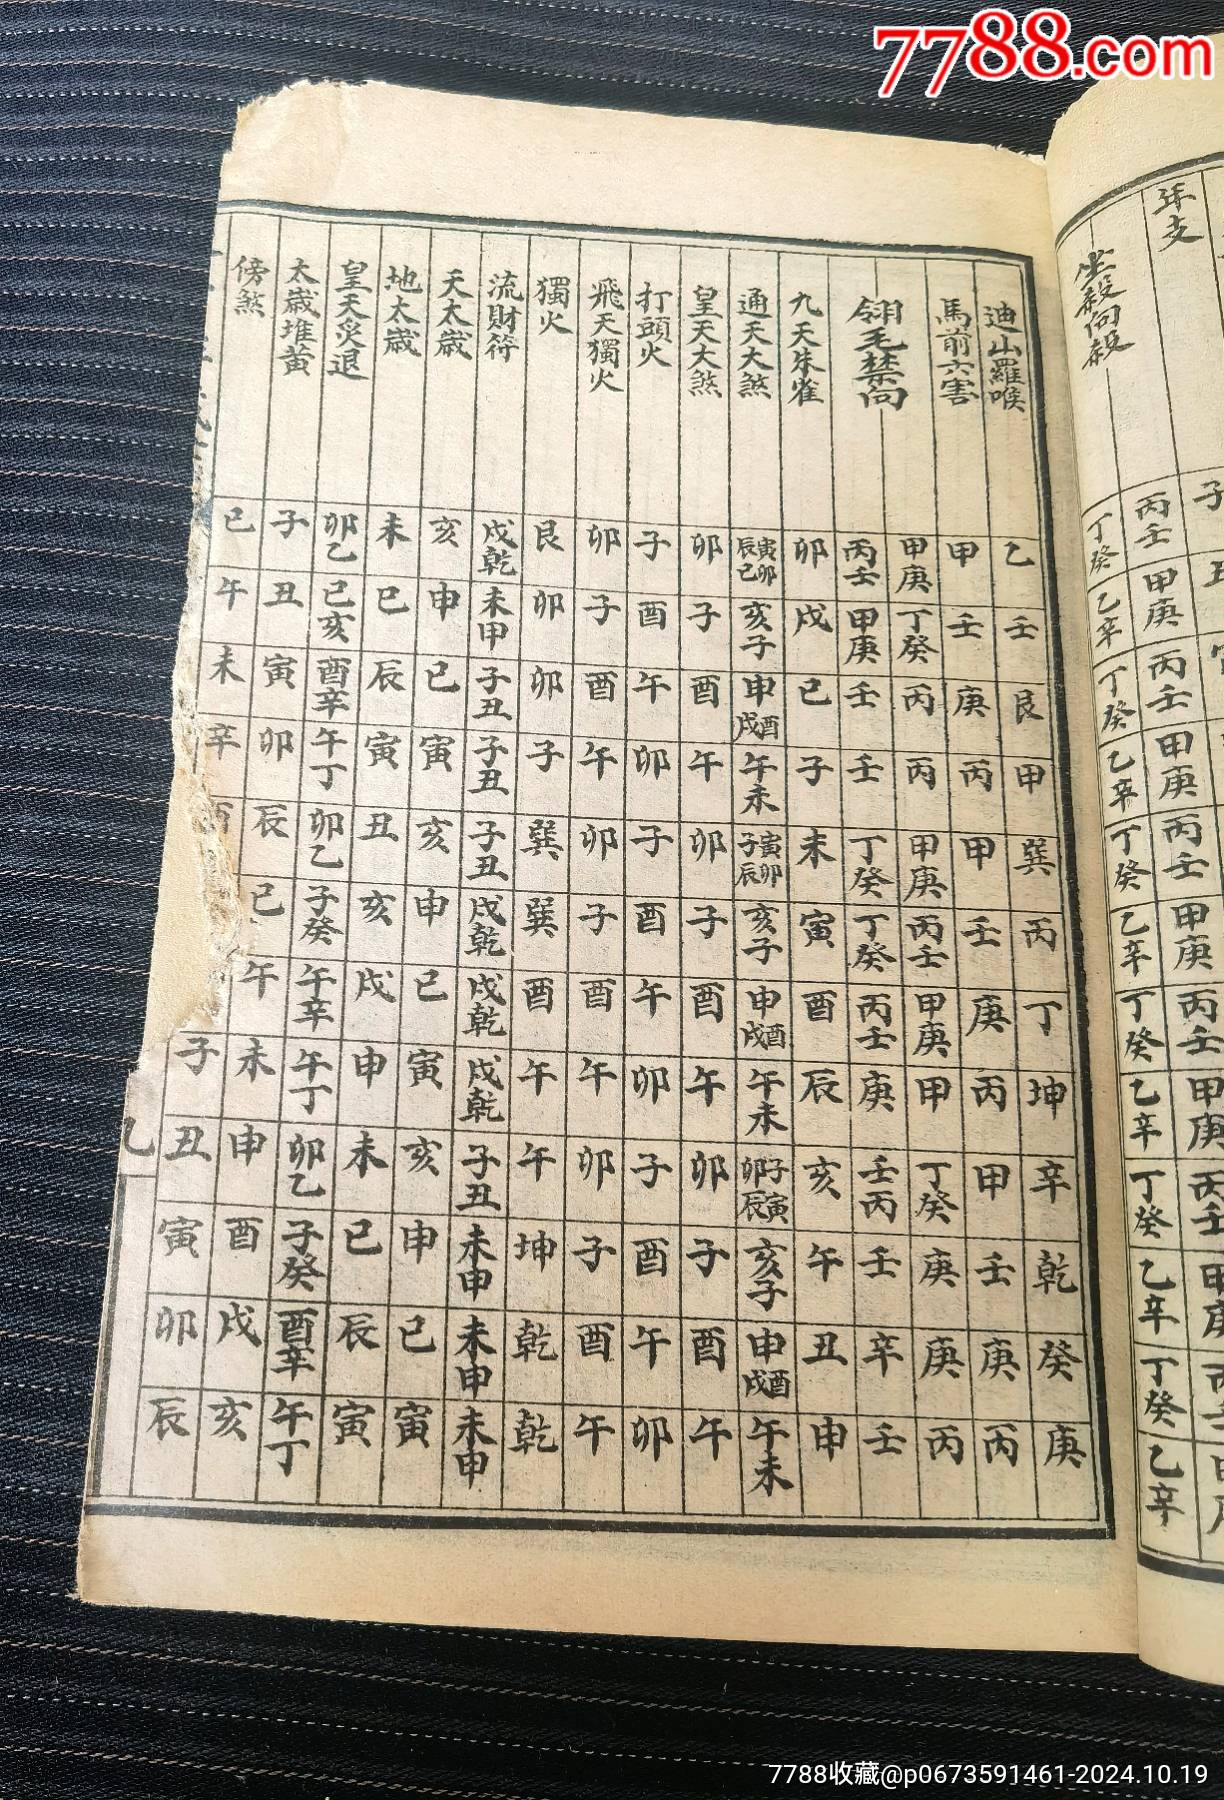 7788.com
年支 子
坐殺向殺 丙壬 丁癸 甲庚 乙辛 丙壬 丁癸 甲庚 乙辛 丙壬 丁癸 甲庚 乙辛 丙壬 丁癸 甲庚 乙辛 丙壬 丁癸 甲庚 乙辛 丙壬 丁癸 乙辛
迪山羅喉 乙 壬 艮 甲 巽 丙 丁 坤 辛 乾 癸 庚
馬前六害 甲 壬 庚 丙 甲 壬 庚 丙 甲 壬 庚 丙
翎毛禁向 甲庚 丁癸 丙 丙 甲庚 丙壬 甲庚 甲 丁癸 庚 庚 丙
丙壬 甲庚 壬 壬 丁癸 丁癸 丙壬 庚 壬丙 壬 辛 壬
九天朱雀 卯 戌 巳 子 未 寅 酉 辰 亥 午 丑 申
通天大煞 寅卯辰巳 亥子 申酉戌 午未 寅卯子辰 亥子 申酉戌 午未 子寅卯辰 亥子 申酉戌 午未
皇天大煞 卯 子 酉 午 卯 子 酉 午 卯 子 酉 午
打頭火 子 酉 午 卯 子 酉 午 卯 子 酉 午 卯
飛天獨火 卯 子 酉 午 卯 子 酉 午 卯 子 酉 午
獨火 艮 卯 卯 子 巽 巽 酉 午 午 坤 乾 乾
流財符 戌乾 未申 子丑 子丑 子丑 戌乾 戌乾 戌乾 子丑 未申 未申 未申
天太歲 亥 申 巳 寅 亥 申 巳 寅 亥 申 巳 寅
地太歲 未 巳 辰 寅 丑 亥 戌 申 未 巳 辰 寅
皇天炙退 卯乙 巳亥 酉辛 午丁 卯乙 子癸 午辛 午丁 卯乙 子癸 酉辛 午丁
太歲堆黄 子 丑 寅 卯 辰 巳 午 未 申 酉 戌 亥
傍煞 巳 午 未 辛 酉 子 丑 寅 卯 辰
7788收藏@p0673591461-2024.10.19